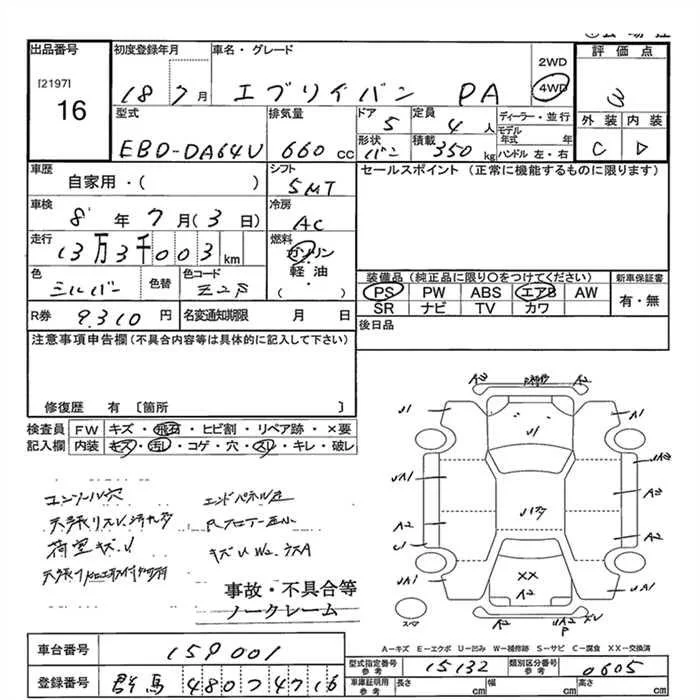 出品番号 初度登録年月 車名・グレード 評価点
[2197]
16
18 7月 エブリイバン PA 2WD 4WD 3
型式 排気量 ドア 5 定員 4人 ディーラー・並行 外装 内装
モデル年式 年
EBD-DA64U 660 CC 形状 バン 積載 350 kg ハンドル 左・右 C D
車歴 自家用・( ) シフト 5MT セールスポイント (正常に機能するものに限ります)
車検 8年 7月(3日) 冷房 AC
走行 13万3千003 km 燃料 ガソリン・軽油・( )
色 シルバー 色替 色コード Z2S
装備品 (純正品に限り○をつけてください) 新車保証書
PS PW ABS エアB AW 有・無
SR ナビ TV カワ
R券 9,310円 名変通知期限 月 日
後日品
注意事項申告欄 (不具合内容等は具体的に記入して下さい)
修復歴 有 〔箇所 〕
検査員 FW キズ・飛石・ヒビ割・リペア跡・×要
記入欄 内装 キズ・汚レ・コゲ・穴・スレ・キレ・破レ
コンソール穴
荷室キズ、U
事故・不具合等
ノークレーム
A2 A2
U1 U1 A1
UA1 A2
A2 A2
UA1 XX UA1
スペア
A-キズ E-エクボ U-凹み W-補修跡 S-サビ C-腐食 XX-交換済
車台番号 159001
登録番号 群馬 480 フ 4716
型式指定番号 参考 15132 類別区分番号 参考 0605
車庫証明用 参考 長さ cm 幅 cm 高さ cm